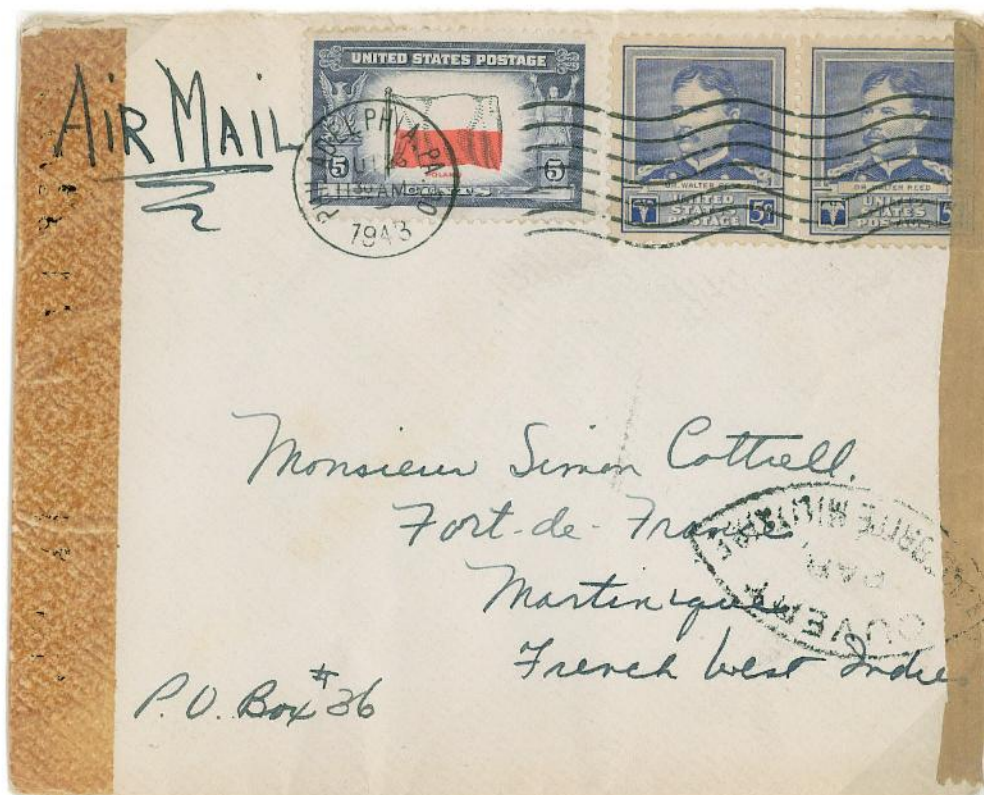 AIR MAIL
UNITED STATES POSTAGE
5 5
POLAND
PHILADELPHIA, PA.
11 30 AM
1943
DR. WALTER REED
UNITED
STATES
POSTAGE
5¢
DR. WALTER REED
UNITED
STATES
POSTAGE
5
Monsieur Simon Cottrell,
Fort-de-France
Martinique
French West Indies
P.O. Box # 36
OUVERT
PAR
MILITAIRE